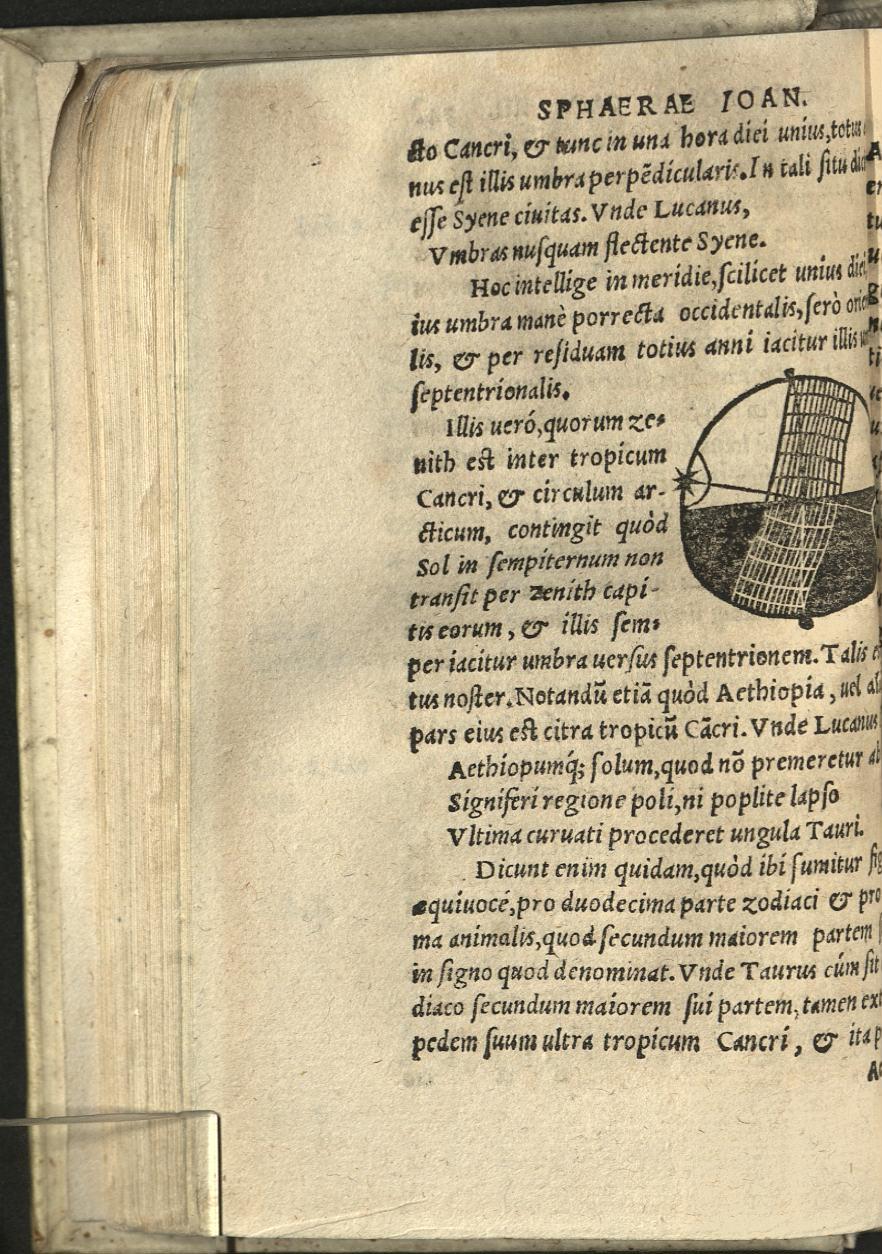 SPHAERAE IOAN.
cto Cancri, & tunc in una hora diei unius, totus
nus est illis umbra perpēdicularis. In tali situ
esse Syene ciuitas. Vnde Lucanus,
Vmbras nusquam flectente Syene.
Hoc intellige in meridie, scilicet unius diei
ius umbra manè porrecta occidentalis, serò
lis, & per residuam totius anni iacitur illis
septentrionalis.
Illis ueró, quorum ze-
nith est inter tropicum
Cancri, & circulum ar-
cticum, contingit quòd
Sol in sempiternum non
transit per zenith capi-
tis eorum, & illis sem-
per iacitur umbra uersus septentrionem. Talis
tus noster. Notandū etiā quòd Aethiopia, uel
pars eius est citra tropicū Cācri. Vnde Lucanus
Aethiopumq́; solum, quod nō premeretur
Signiferi regione poli, ni poplite lapso
Vltima curuati procederet ungula Tauri.
Dicunt enim quidam, quòd ibi sumitur
æquiuocé, pro duodecima parte zodiaci & pro
ma animalis, quod secundum maiorem partem
in signo quod denominat. Vnde Taurus cúm sit
diaco secundum maiorem sui partem, tamen
pedem suum ultra tropicum Cancri, & ita